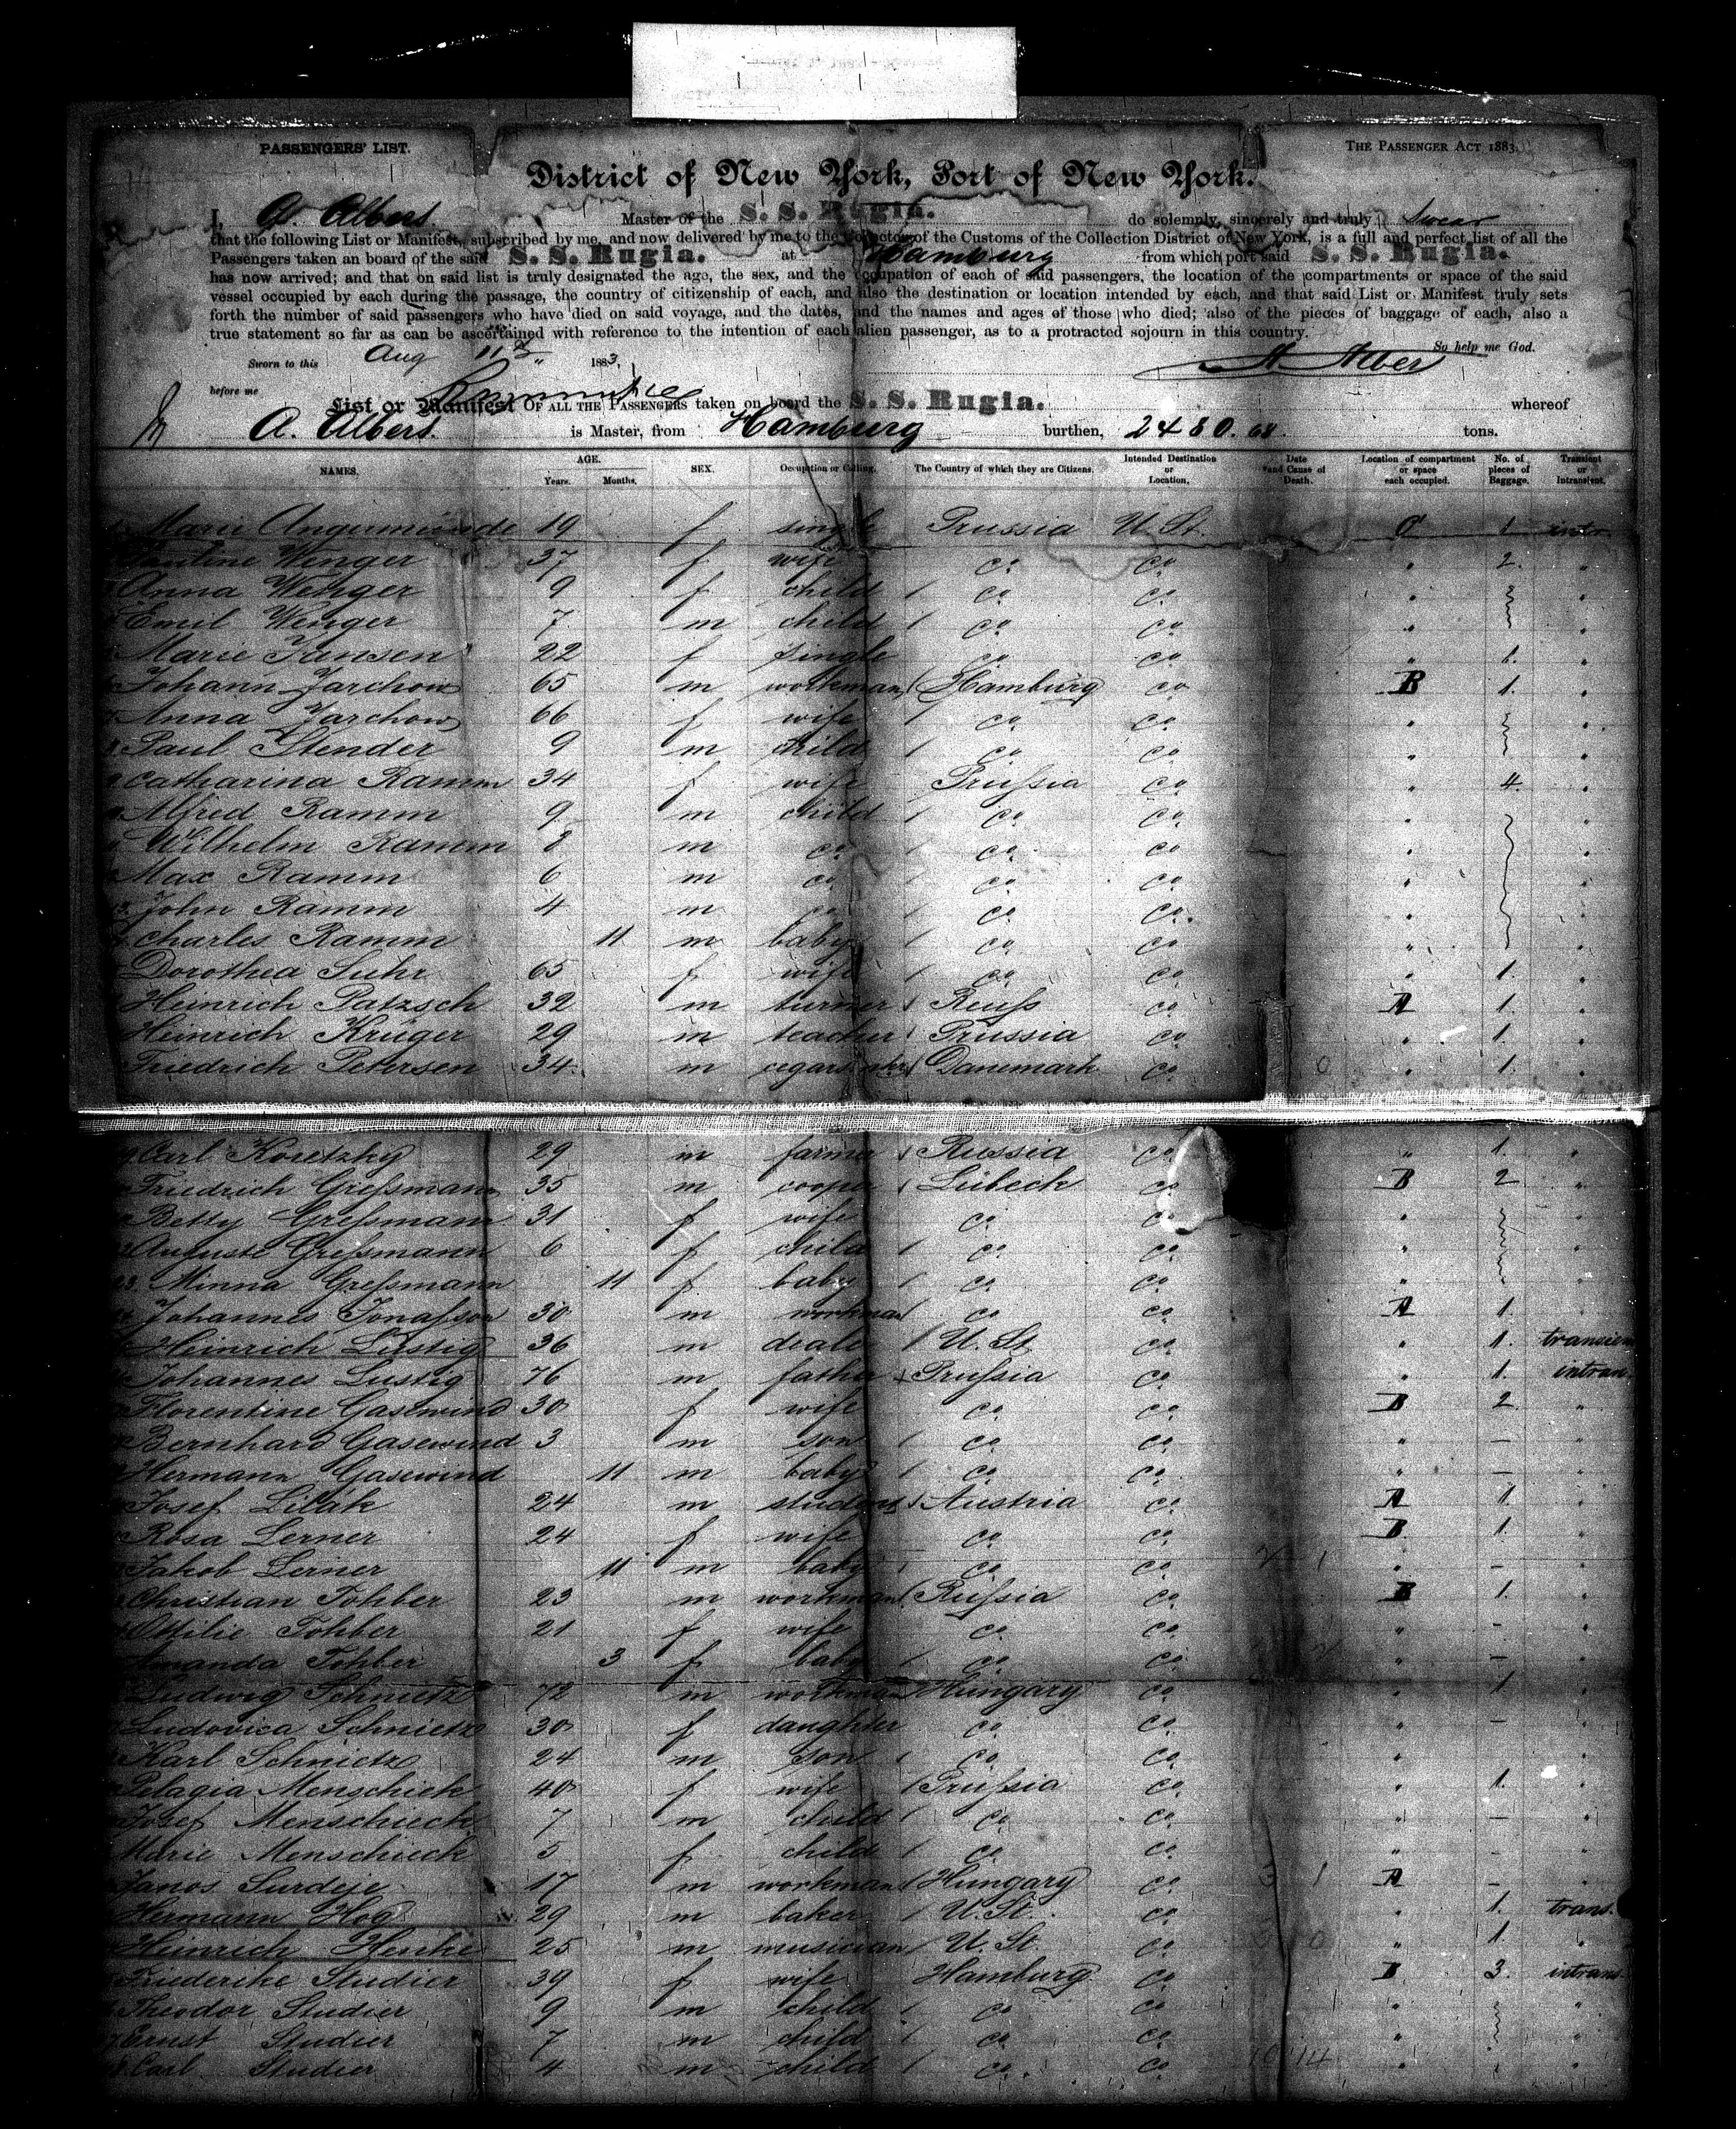 PASSENGERS' LIST.
THE PASSENGER ACT 1883.
District of New York, Port of New York.
I, A. Albers Master of the S. S. Rugia. do solemnly, sincerely and truly swear
that the following List or Manifest, subscribed by me, and now delivered by me to the Collector of the Customs of the Collection District of New York, is a full and perfect list of all the
Passengers taken on board of the said S. S. Rugia. at Hamburg from which port said S. S. Rugia.
has now arrived; and that on said list is truly designated the age, the sex, and the occupation of each of said passengers, the location of the compartments or space of the said
vessel occupied by each during the passage, the country of citizenship of each, and also the destination or location intended by each, and that said List or Manifest truly sets
forth the number of said passengers who have died on said voyage, and the dates, and the names and ages of those who died; also of the pieces of baggage of each, also a
true statement so far as can be ascertained with reference to the intention of each alien passenger, as to a protracted sojourn in this country.
So help me God.
Sworn to this Aug 11 1883,
A. Albers
before me
List or Manifest OF ALL THE PASSENGERS taken on board the S. S. Rugia. whereof
A. Albers. is Master, from Hamburg burthen, 2480.68 tons.
NAMES. AGE. Years. Months. SEX. Occupation or Calling. The Country of which they are Citizens. Intended Destination or Location. Date and Cause of Death. Location of compartment or space each occupied. No. of pieces of Baggage. Transient or Intransient.
Marie Angermünde 19 f single Prussia U. St. C 1. intr.
Pauline Wenger 37 f wife co co " 2. "
Anna Wenger 9 f child co co " "
Emil Wenger 7 m child co co " "
Marie Jansen 22 f single co co " 1. "
Johann Jarchow 65 m workman Hamburg co B 1. "
Anna Jarchow 66 f wife co co " "
Paul Stender 9 m child co co " "
Catharina Ramm 34 f wife Prussia co " 4. "
Alfred Ramm 9 m child co co " "
Wilhelm Ramm 8 m co co co " "
Max Ramm 6 m co co co " "
John Ramm 4 m co co co " "
Charles Ramm 11 m baby co co " "
Dorothea Suhr 65 f wife co co " 1. "
Heinrich Patzsch 32 m turner Reuss co A 1. "
Heinrich Krüger 29 m teacher Prussia co " 1. "
Friedrich Petersen 34 m Danemark co " 1. "
Carl Koretzky 29 m farmer Russia co " 1. "
Friedrich Gressmann 35 m cooper Lübeck co B 2 "
Betty Gressmann 31 f wife co co " "
Auguste Gressmann 6 f child co co " "
23. Minna Gressmann 11 f baby co co " "
Johannes Jonasson 30 m workman co co A 1. "
Heinrich Lustig 36 m dealer U. St. co " 1. transien
Johannes Lustig 76 m father Prussia co " 1. intran.
Florentine Gasewind 30 f wife co co B 2 "
Bernhard Gasewind 3 m son co co " – "
Hermann Gasewind 11 m baby co co " – "
Josef Lilák 24 m student Austria co A 1. "
Rosa Lerner 24 f wife co co B 1. "
Jakob Lerner 11 m baby co co " – "
Christian Tohber 23 m workman Russia co B 1. "
Ottilie Tohber 21 f wife co co " – "
Amanda Tohber 3 f baby co co " – "
Ludwig Schnietz 72 m workman Hungary co " 1 "
Ludovica Schnietz 30 f daughter co co " – "
Karl Schnietz 24 m son co co " "
Pelagia Menschieck 40 f wife Prussia co " 1. "
Josef Menschieck 7 m child co co " – "
Marie Menschieck 5 f child co co " – "
Janos Surdeje 17 m workman Hungary co A – "
Hermann Hog 29 m baker U. St. co " 1. trans.
Heinrich Henke 25 m musician U. St. co " 1. "
Friederike Studier 39 f wife Hamburg co B 3. intrans.
Theodor Studier 9 m child co co " "
Ernst Studier 7 m child co co " "
Carl Studier 4 m child co co " "